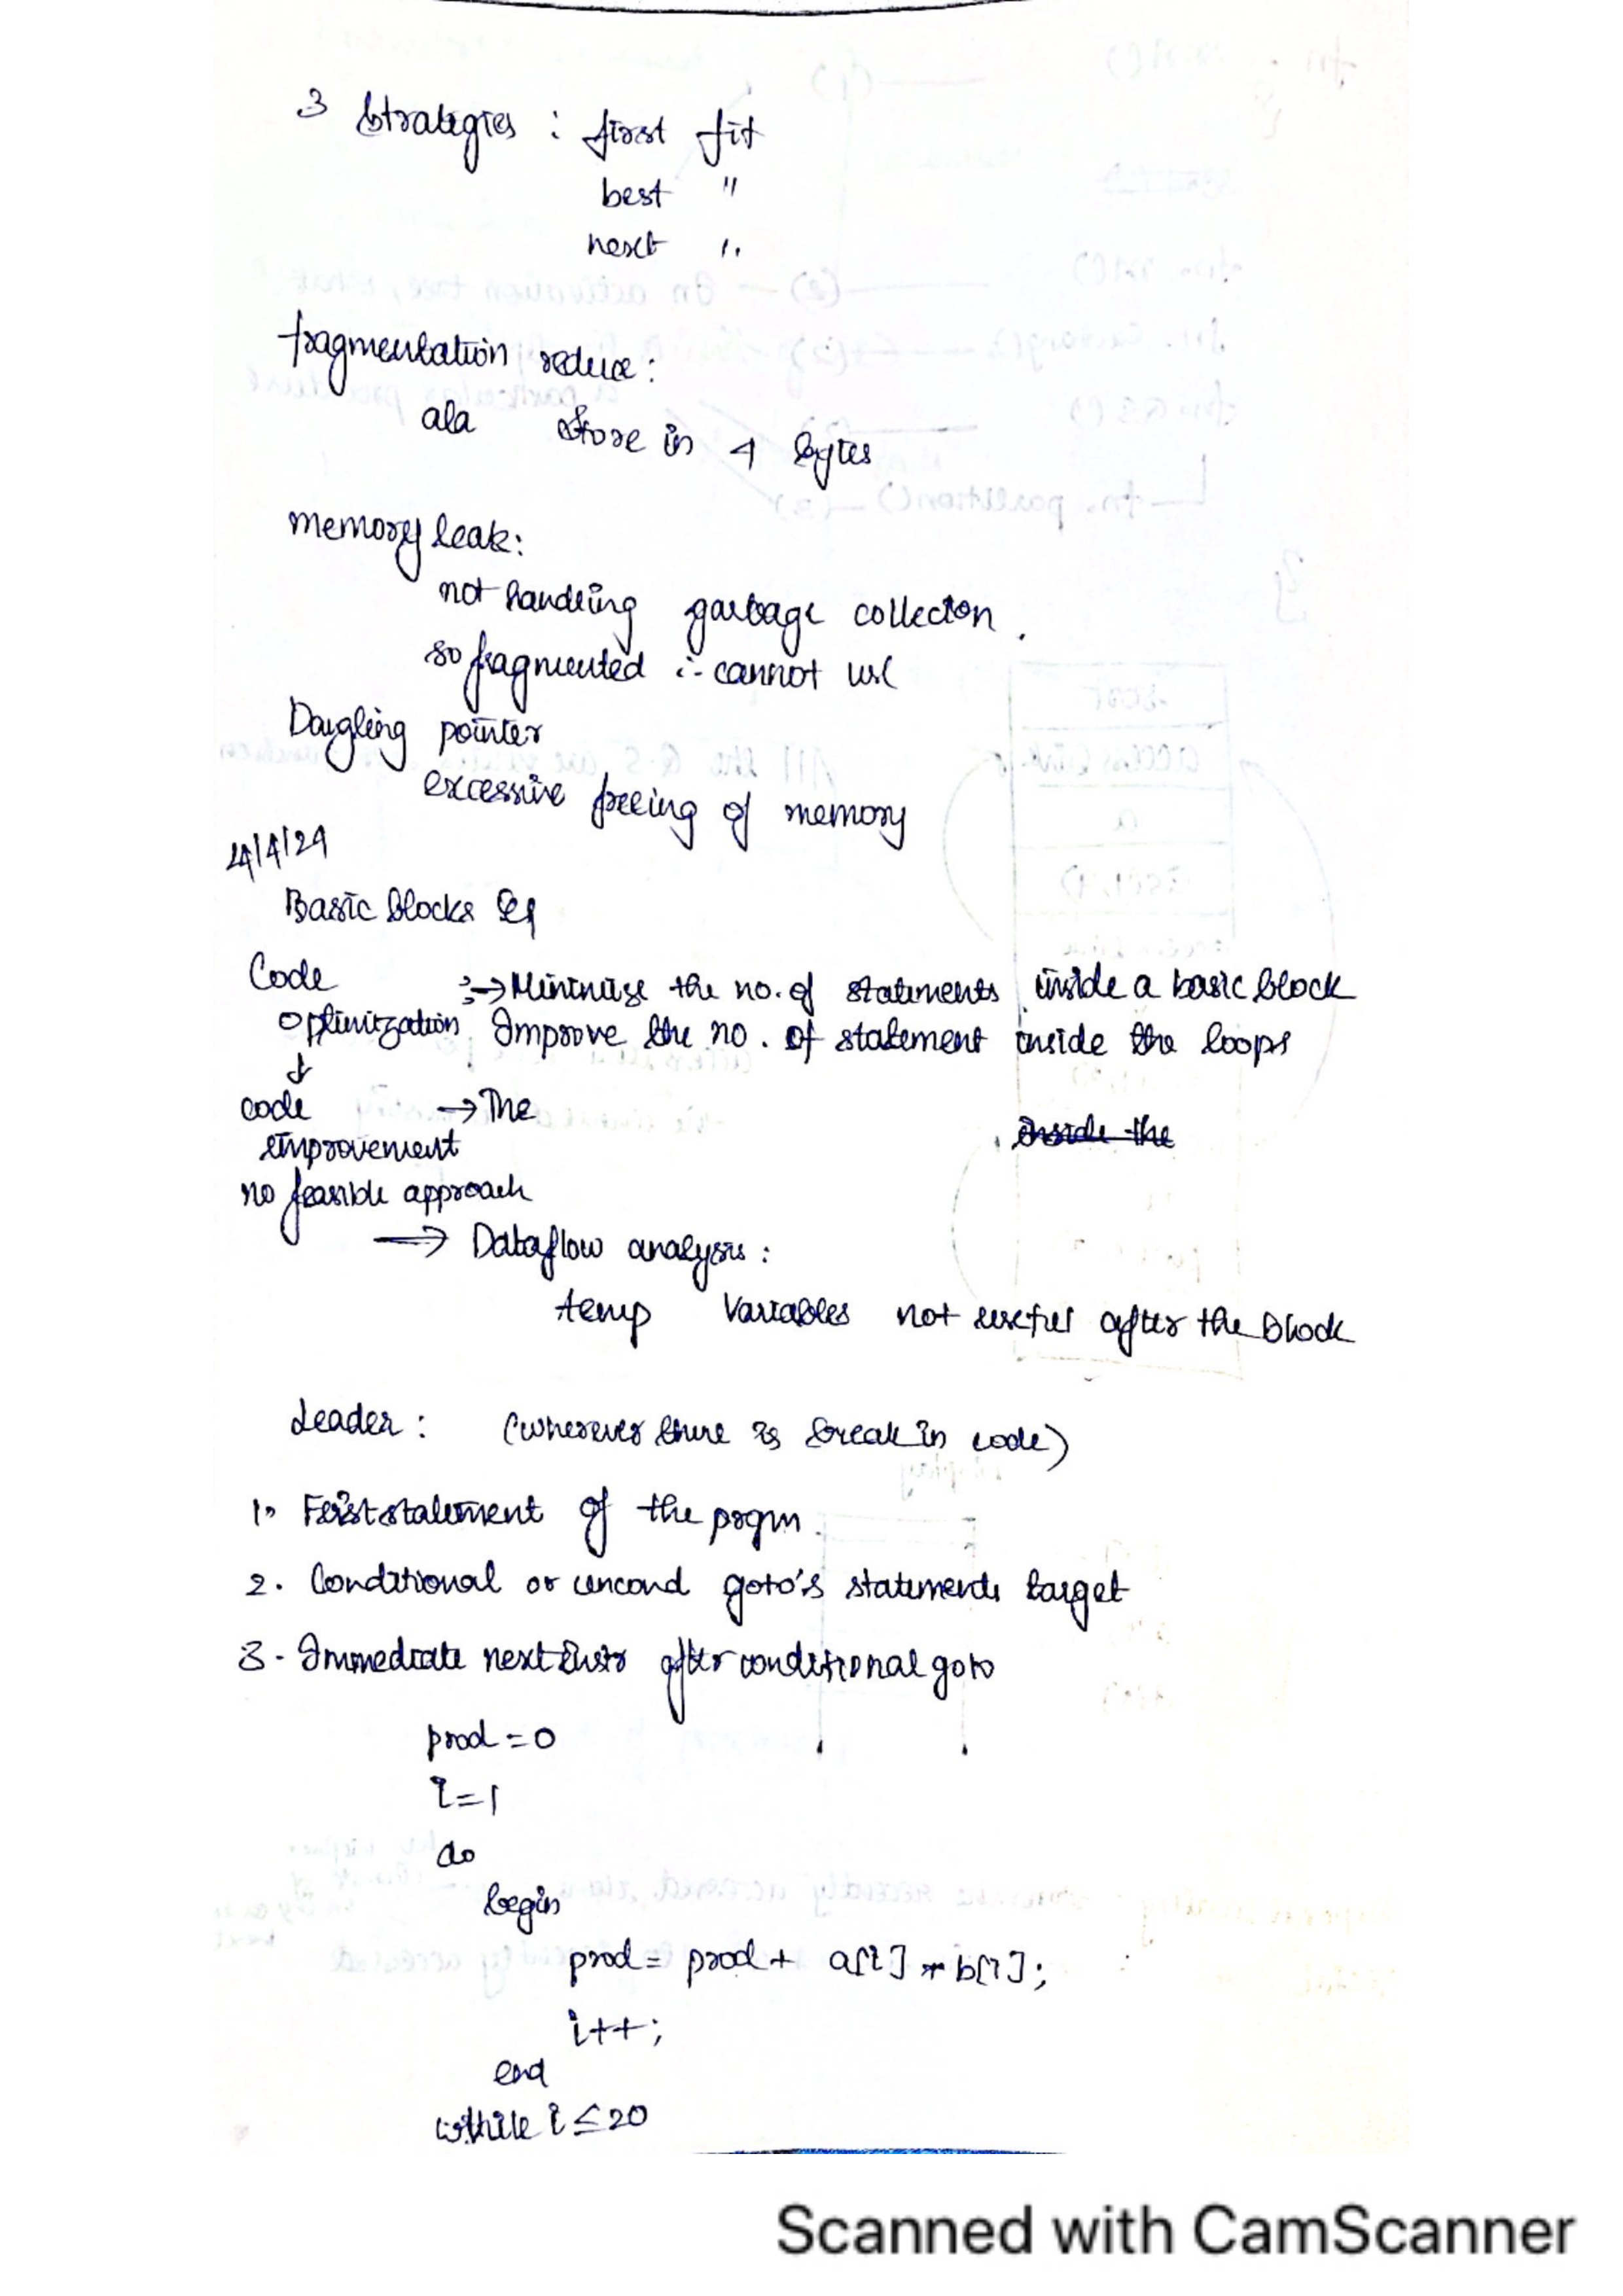 3 Strategies : first fit
best "
next "
fragmentation reduce :
ala store in 4 bytes
memory leak:
not handling garbage collection.
so fragmented ∴ cannot use
Dangling pointer
excessive freeing of memory
4/4/24
Basic blocks &
Code :→ Minimize the no. of statements inside a basic block
optimization Improve the no. of statement inside the loops
↓
code → The inside the
improvement
no feasible approach
⟹ Dataflow analysis :
temp variables not useful after the block
Leader : (wherever there is break in code)
1. First statement of the prgm.
2. Conditional or uncond goto's statements target
3. Immediate next instr after conditional goto
prod = 0
i = 1
do
begin
prod = prod + a[i] * b[i];
i++;
end
while i ≤ 20
Scanned with CamScanner